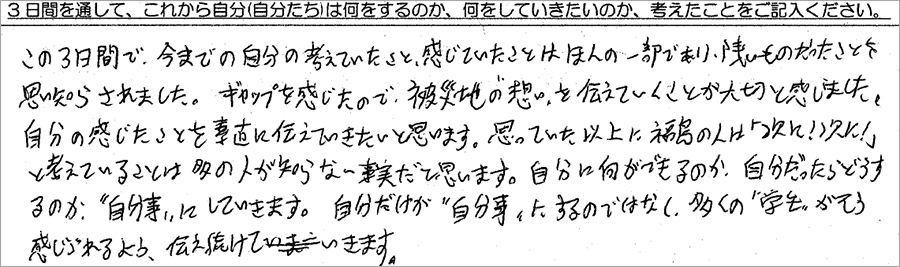 3日間を通して、これから自分(自分たち)は何をするのか、何をしていきたいのか、考えたことをご記入ください。
この3日間で、今までの自分の考えていたこと、感じていたことはほんの一部であり、浅いものだったことを
思い知らされました。ギャップを感じたので、被災地の"想い"を伝えていくことが大切と感じました。
自分の感じたことを素直に伝えていきたいと思います。思っていた以上に福島の人は「次に!次に!」
と考えていることは多くの人が知らない事実だと思います。自分に何ができるのか、自分だったらどうす
るのか、"自分事"にしていきます。自分だけが"自分事"にするのではなく、多くの「学生」がそう
感じられるよう、伝え続けていきます。